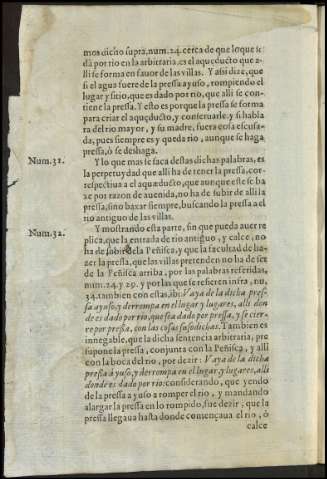 mos dicho supra, num. 24. cerca de que lo que se
da por rio en la arbitraria, es el aqueducto que a-
lli se forma en fauor de las villas. Y assi dize, que
si el agua fuere de la pressa ayuso, rompiendo el
lugar y sitio, que es dado por rio, que alli se con-
tiene la pressa. Y esto es porque la pressa se forma
para criar el aqueducto, y conseruarle, y si habla
ra del rio mayor, y su madre, fuera cosa escusa-
da, pues siempre es y queda rio, aunque se haga
pressa, ò se deshaga.
Num. 31.
Y lo que mas se saca destas dichas palabras, es
la perpetuydad que alli ha de tener la pressa, cor-
respectiua a el aqueducto, que aunque este se ha
ze por razon de auenida, no ha de subir de alli la
pressa, sino baxar siempre, buscando la pressa a el
rio antiguo de las villas.
Num. 32.
Y mostrando esta parte, sin que pueda auer re
plica, que la entrada de rio antiguo, y calce, no
ha de subir de la Peñisca, y que la facultad de ha-
zer la pressa, que las villas pretenden no ha de ser
de la Peñisca arriba, por las palabras referidas,
num. 24. y 29. y por las que se refieren infra, nu.
34. tambien con estas, ibi: Vaya de la dicha pres-
sa ayuso, y derrompa en el lugar y lugares, alli don
de es dado por rio, que sea dado por pressa, y se cier-
re por pressa, con las cosas susodichas. Tambien es
innegable, que la dicha sentencia arbitraria, pre
supone la pressa, conjunta con la Peñisca, y alli
con la boca del rio, por dezir: Vaya de la dicha
pressa à yuso, y derrompa en el lugar y lugares, alli
donde es dado por rio: considerando, que yendo
de la pressa a yuso a romper el rio, y mandando
alargar la pressa en lo rompido, fue dezir, que la
pressa llegaua hasta donde començaua el rio, ò
calce